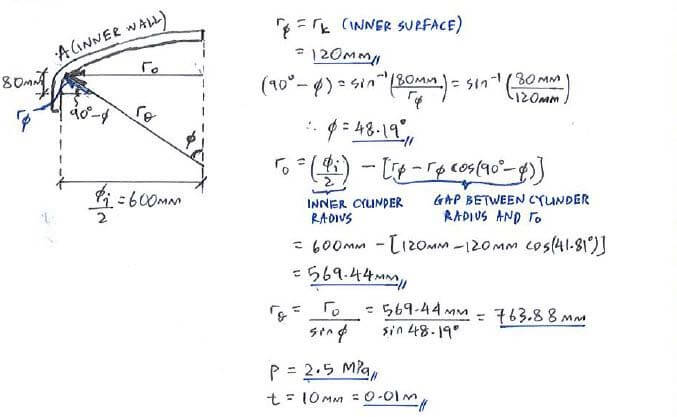 A (INNER WALL)
80MM
r₀
rϕ
90°-ϕ
rθ
ϕ
ϕi/2 = 600MM
rϕ = rk (INNER SURFACE)
= 120MM
(90° - ϕ) = sin⁻¹(80MM/rϕ) = sin⁻¹(80MM/120MM)
∴ ϕ = 48.19°
r₀ = (ϕi/2) - [rϕ - rϕ cos(90° - ϕ)]
INNER CYLINDER RADIUS
GAP BETWEEN CYLINDER RADIUS AND r₀
= 600MM - [120MM - 120MM cos(41.81°)]
= 569.44MM
rθ = r₀/sin ϕ = 569.44MM/sin 48.19° = 763.88MM
P = 2.5 MPa
t = 10MM = 0.01M